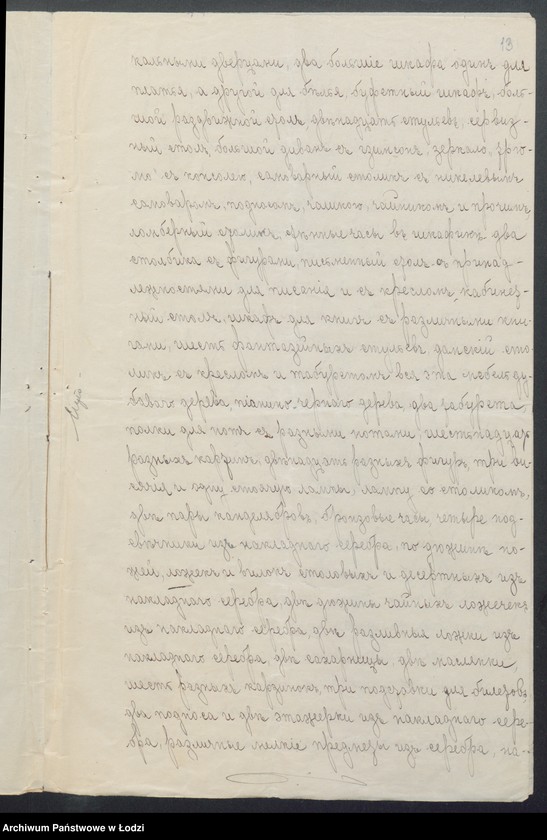 13
кальными дверцами, два большіе шкафа одинъ для
платья, а другой для бѣлья, буфетный шкафъ, боль-
шой раздвижной столъ двѣнадцать стульевъ, сервиз-
ный столъ, большой диванъ съ зеркало, трю-
мо съ консолею, самоварный столикъ съ никелевымъ
самоваромъ, подносомъ, чашкою, чайникомъ и прочимъ
ломберный столикъ, стѣнные часы въ шкафикѣ, два
столбика съ фигурами, письменный столъ съ принад-
лежностями для писанія и съ кресломъ, кабинет-
ный столъ, шкафъ для книгъ съ различными кни-
гами, шесть фантазейныхъ стульевъ, дамскій сто-
ликъ съ кресломъ и табуретомъ вся эта мебель ду-
боваго дерева, піанино чернаго дерева, два табурета
полки для нотъ съ разными нотами, шестнадцать
разныхъ картинъ, двѣнадцать разныхъ фигуръ, три ви-
сячія и одну стоячую лампы, лампу со столикомъ,
двѣ пары канделябровъ, бронзовые часы, четыре под-
свѣчника изъ накладного серебра, по дюжинѣ но-
жей, ложекъ и вилокъ столовыхъ и десертныхъ изъ
накладнаго серебра, двѣ дюжины чайныхъ ложечекъ
изъ накладнаго серебра, двѣ разливныя ложки изъ
накладнаго серебра, двѣ сахарницы, двѣ масленки,
шесть разныхъ корзинокъ, три подставки для билетовъ,
два подноса и двѣ этажерки изъ накладнаго сере-
бра, различные мелкіе предметы изъ серебра, на-
Archiwum Państwowe w Łodzi